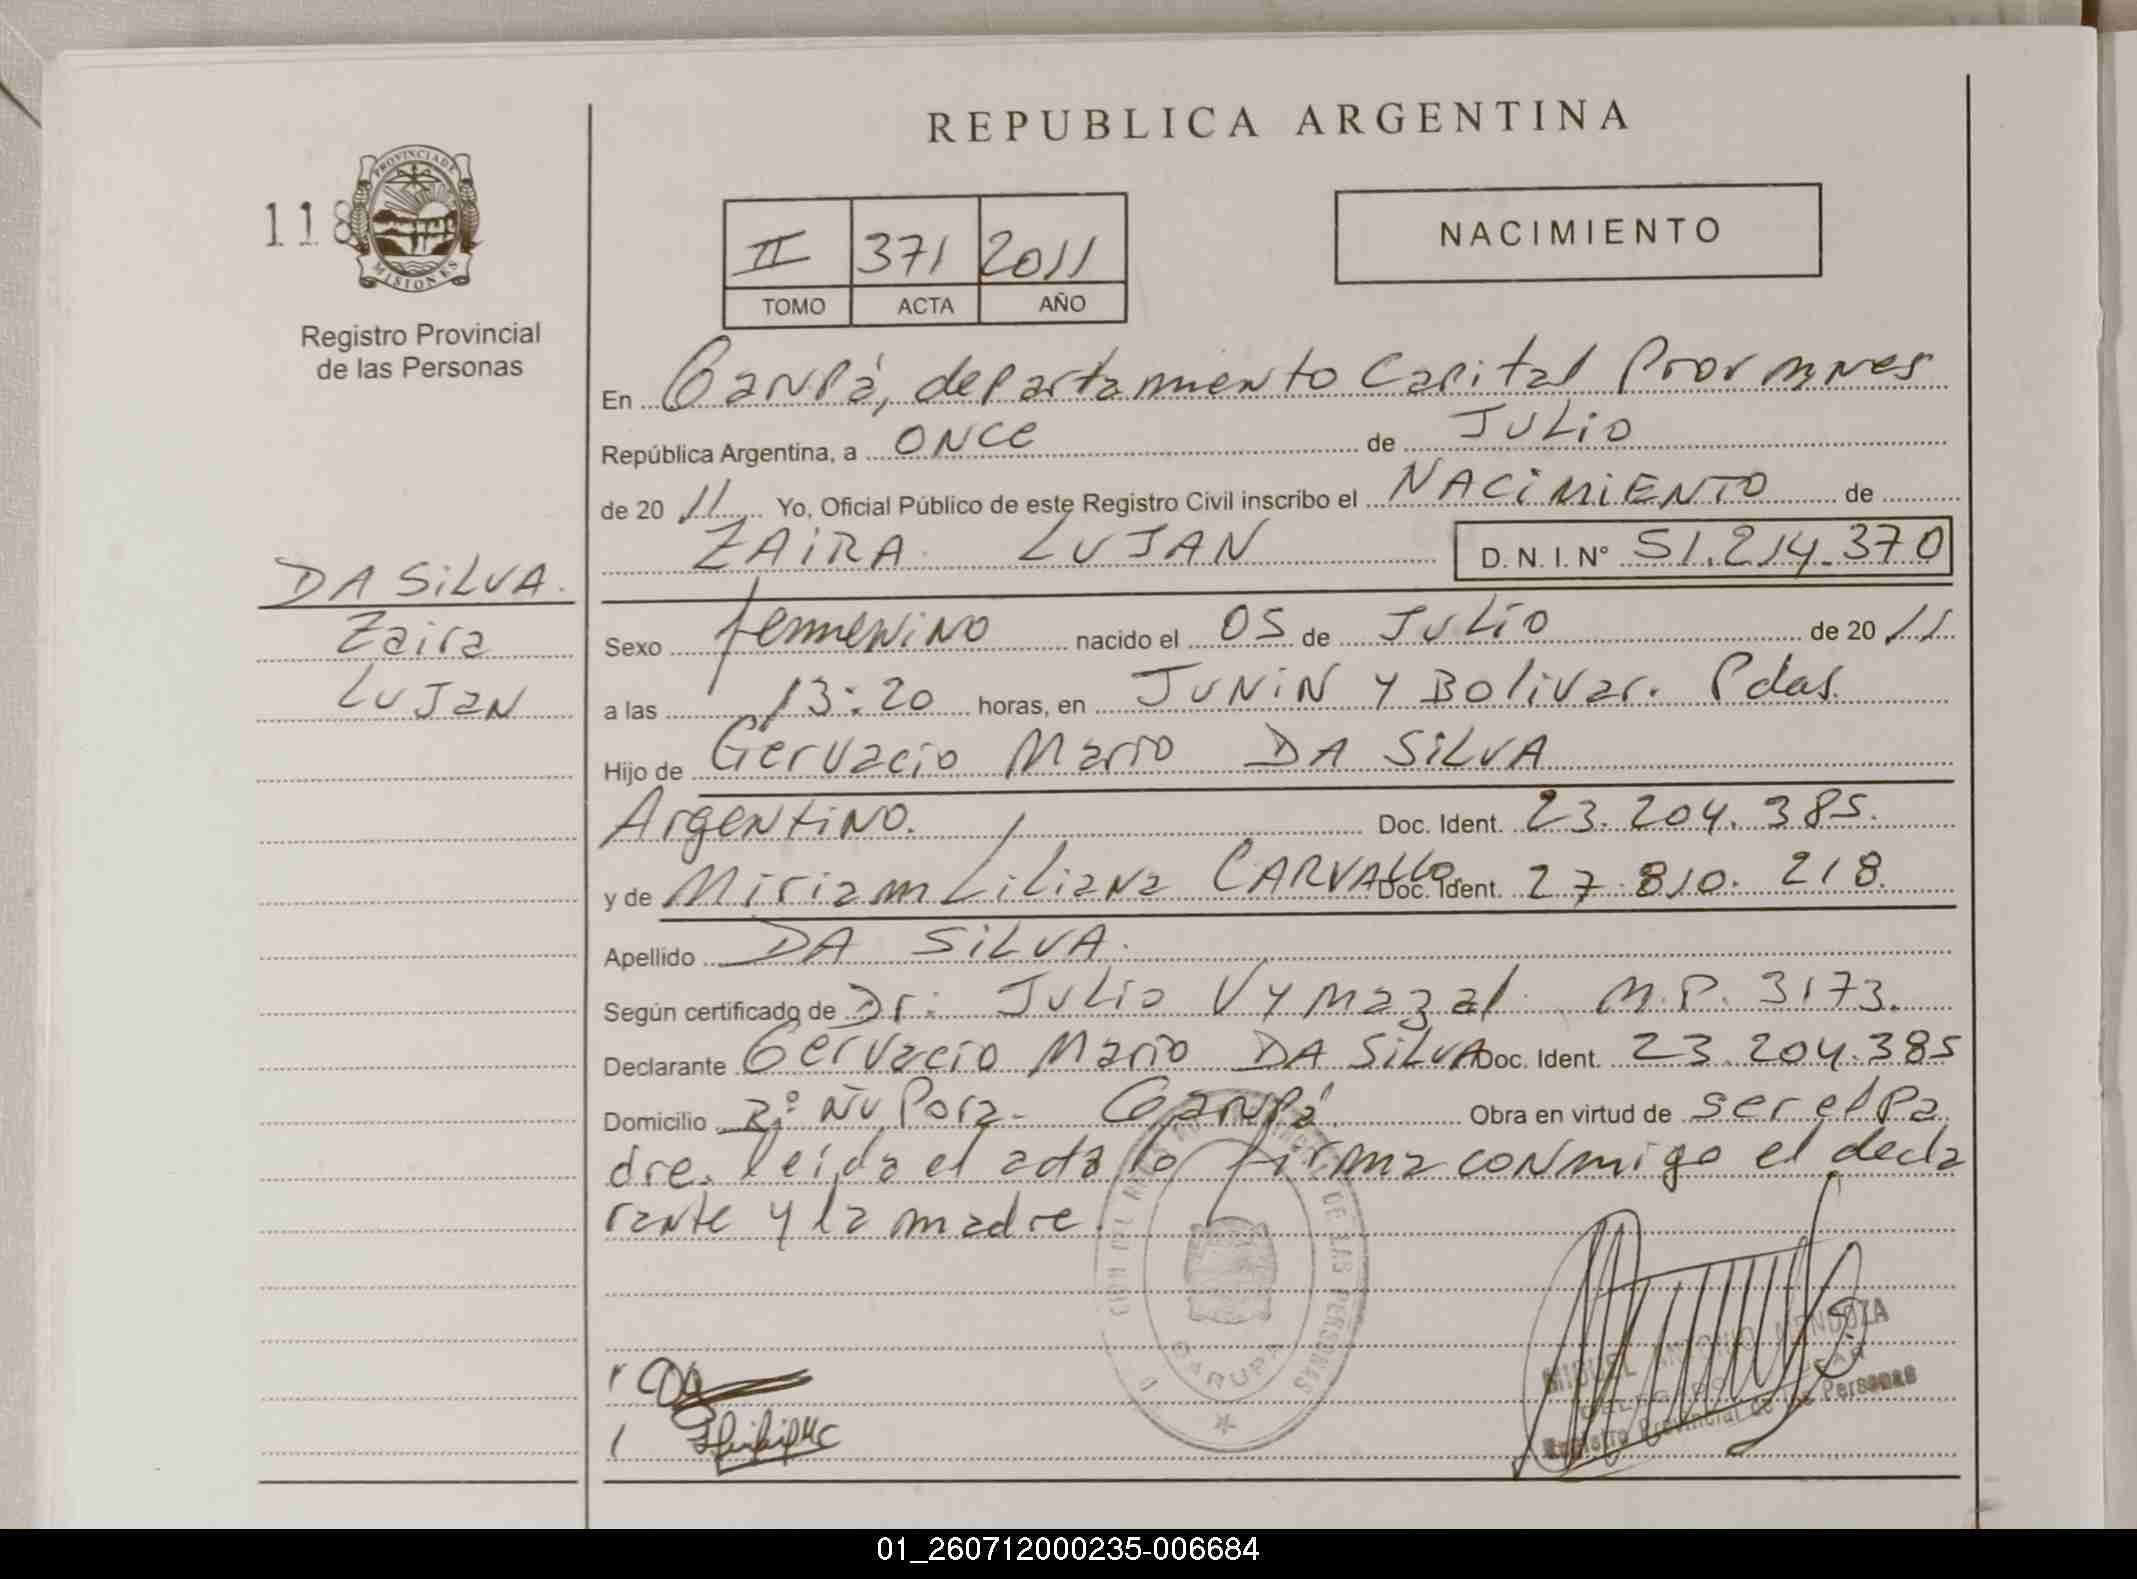 REPUBLICA ARGENTINA
118
PROVINCIA DE
MISIONES
Registro Provincial
de las Personas
II 371 2011
TOMO ACTA AÑO
NACIMIENTO
En Garupá, departamento Capital Prov Mnes
República Argentina, a once de Julio
de 2011 Yo, Oficial Público de este Registro Civil inscribo el NACIMIENTO de
ZAIRA LUJAN D. N. I. N° 51.214.370
DA SILVA.
Zaira
LUJAN
Sexo femenino nacido el 05 de Julio de 2011
a las 13:20 horas, en JUNIN Y Bolivar. Pdas.
Hijo de Gervacio Mario DA SILVA
Argentino. Doc. Ident. 23.204.385.
y de Miriam Liliana CARVALLO Doc. Ident. 27.810.218.
Apellido DA SILVA.
Según certificado de Dr. Julio Vymazal M.P. 3173.
Declarante Gervacio Mario DA SILVA Doc. Ident. 23.204.385
Domicilio Bº Ñu Pora - Garupá. Obra en virtud de ser el Pa
dre. leída el acta la firma conmigo el decla
rante y la madre.
DE LAS PERSONAS
GARUPA
MIGUEL ANTONIO MENDOZA
DELEGADO
Registro Provincial de las Personas
01_260712000235-006684